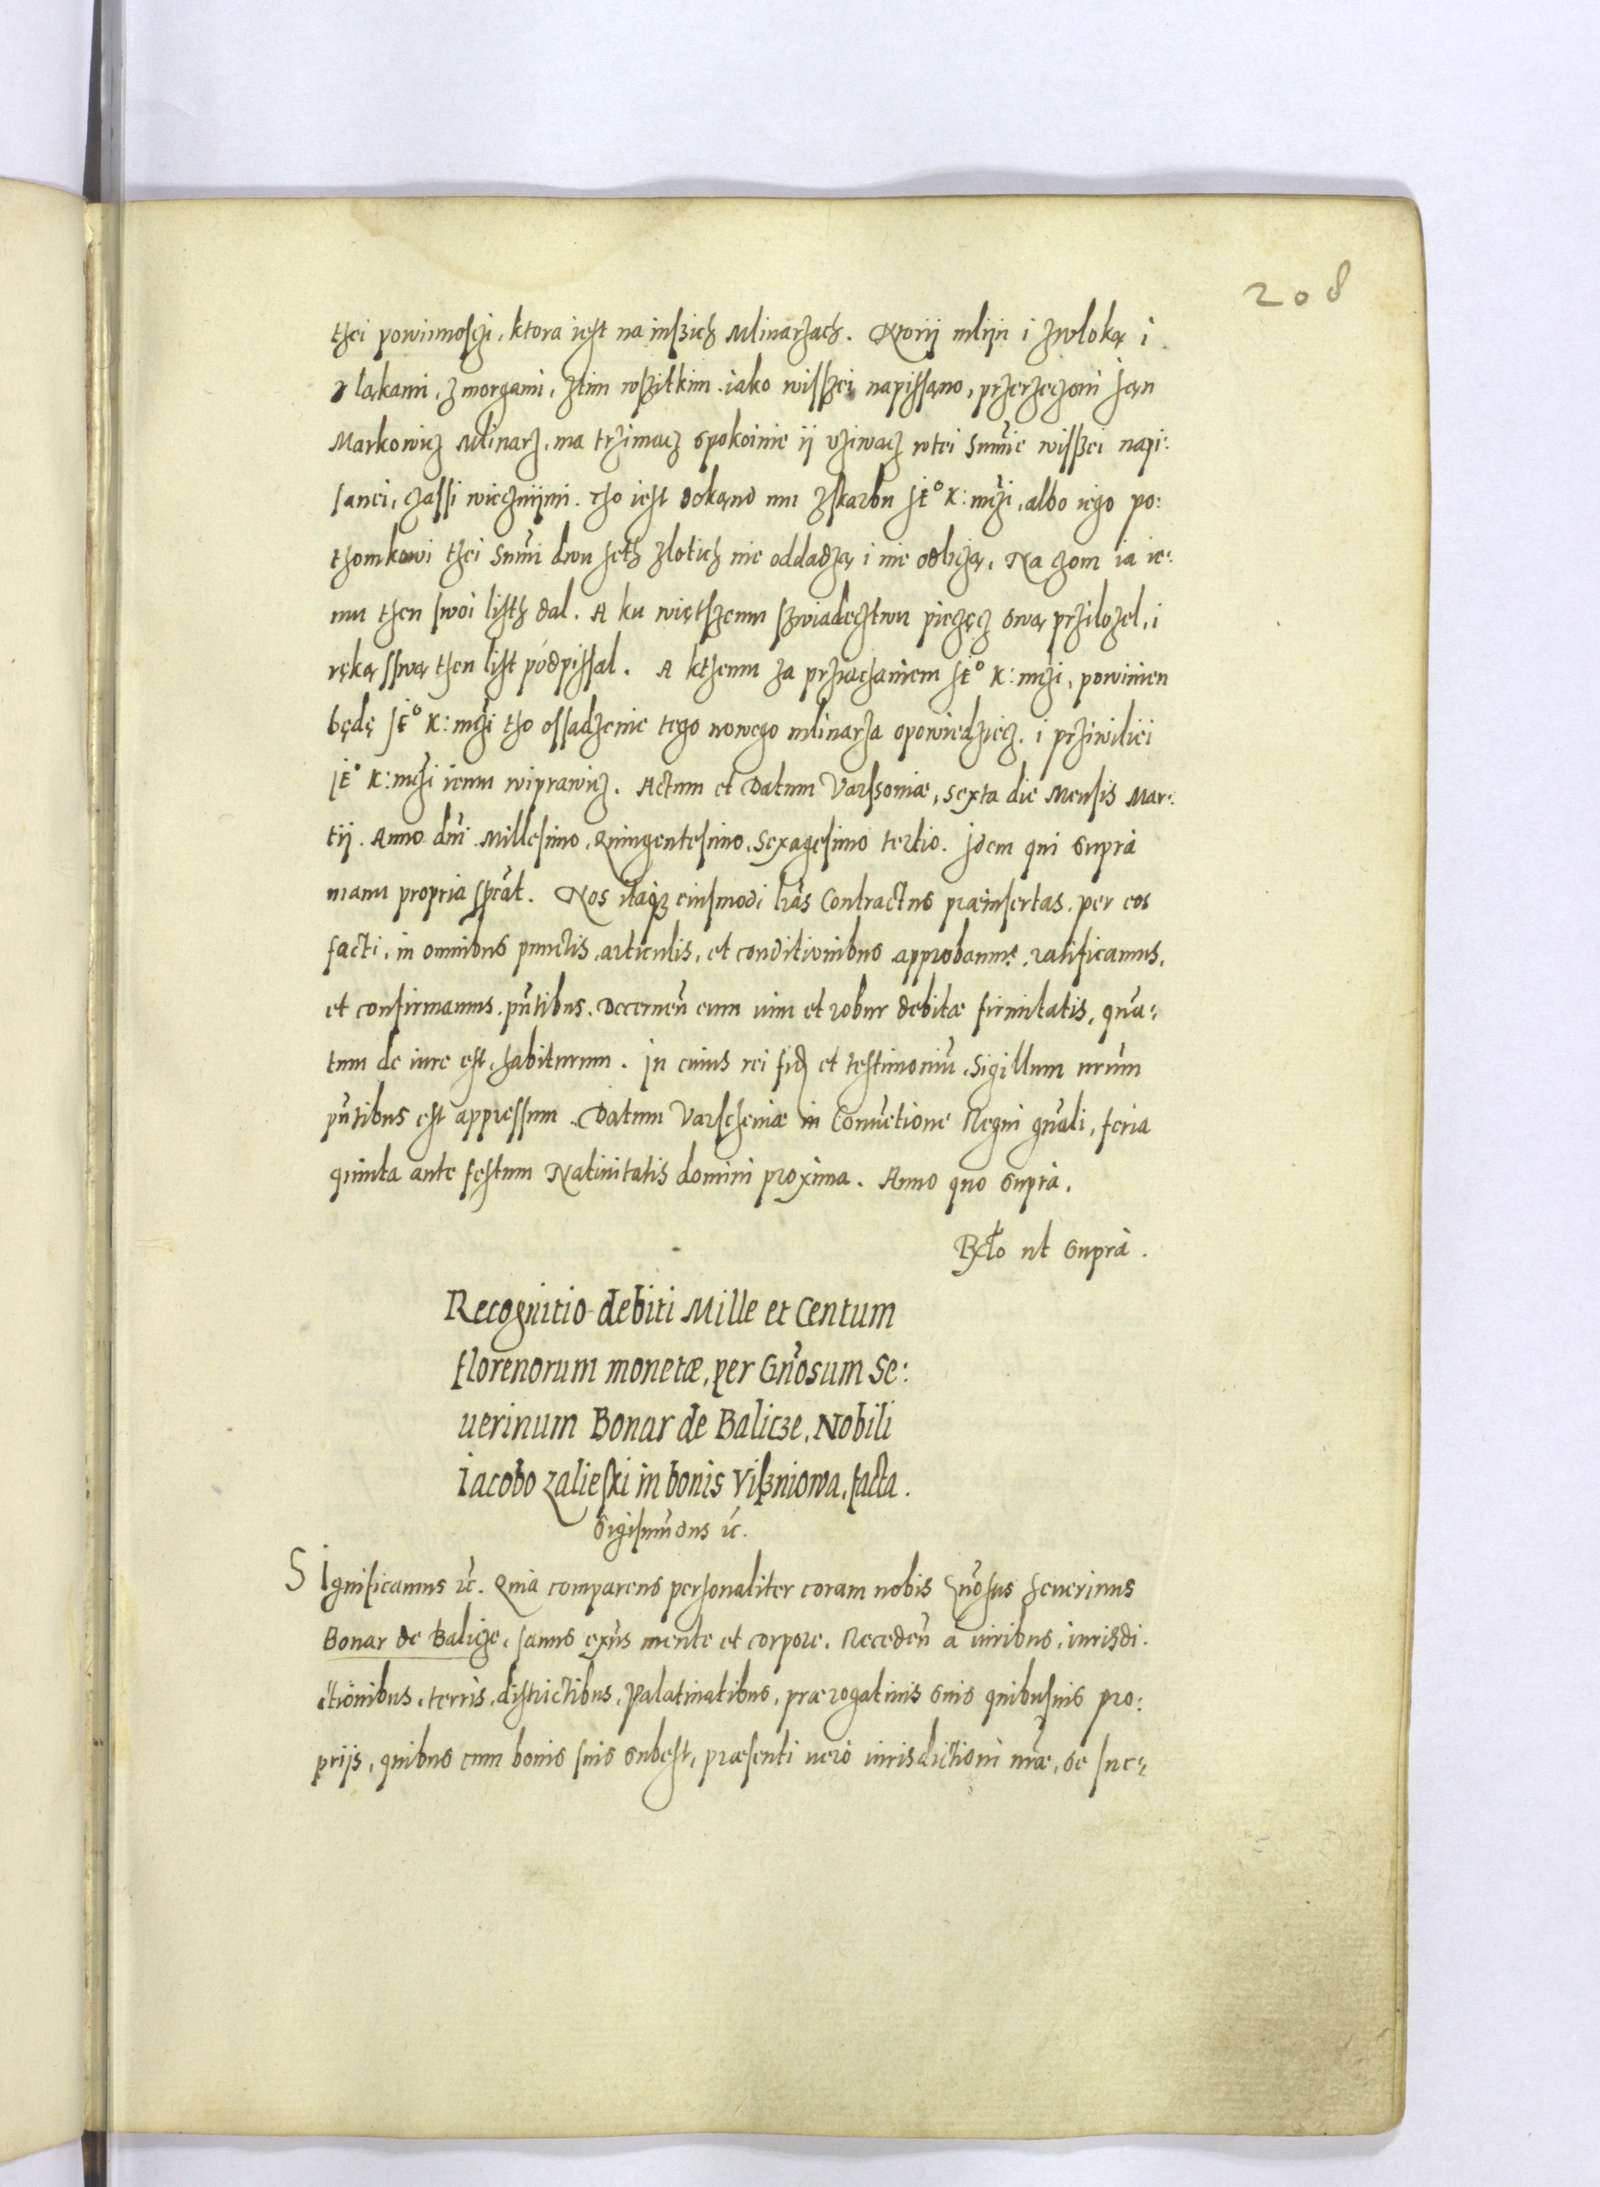 208
thei powinnosczi, ktora iest na inszich Mlinarzach. Ktorij mlijn i zwloką i
z ląkami, z morgami, ztim wszitkim iako wisszei napissąno, przerzeczoni Jan
Markowicz Mlinarz, ma trzimacz spokoinie ij vziwacz wtei Sum̃ie wisszei napi:
sanei, czassi wiecznijmi. Tho iest dokąnd mu zskarbu JE° K: mczi, albo iego po:
thomkowi thei Sum̃i dwu seth zlotich nie oddadzą i nie odliczą. Na czom ia ie:
mu then swoi listh dal. A ku więtszemu szwiadecztwu pieczęcz swą przilozel, i
ręką sswą then list pódpissal. A kthemu za przijachaniem JE° K: mczi, powinien
będę JE° K: mczi tho ossadzenie tego nowego mlinarza opowiedziecz, i prziwiliei
JE° K: mczi iemu wiprawicz. Actum et Datum Varssoniae, Sexta die Mensis Mar:
tij. Anno dñi Millesimo, Quingentesimo, Sexagesimo tertio. Jdem qui supra
manu propria sp̃cãt. Nos itaq; eiusmodi lr̃as Contractus praeinsertas, per eos
facti, in omnibus punctis, articulis, et conditionibus approbamus, ratificamus,
et confirmamus, pñtibus. Decerneñ eum uim et robur debitae firmitatis, qua:
tum de iure est, habiturum. In cuius rei fid et testimoniũ, Sigillum nr̃um
pñtibus est appressum. Datum Varscheniae in Conuẽtione Regni gñali, feria
quinta ante festum Natiuitatis domini proxima. Anno quo supra.
Rcto ut supra.
Recognitio debiti Mille et Centum
florenorum monetæ, per Gñosum Se:
uerinum Bonar de Balicze, Nobili
Iacobo Zalieski in bonis Viszniowa, facta.
Sigismũdus ec̃.
SIgnificamus ec̃. Quia comparens personaliter coram nobis Gñosus Seuerinus
Bonar de Balicze, sanus exñs mente et corpore. Recedeñ a iuribus, iurisdi:
ctionibus, terris, districtibus, Palatinatibus, praerogatiuis suis quibusuis pro:
prijs, quibus cum bonis suis subest, praesenti uero iurisdictioni nr̃ae, se suc: